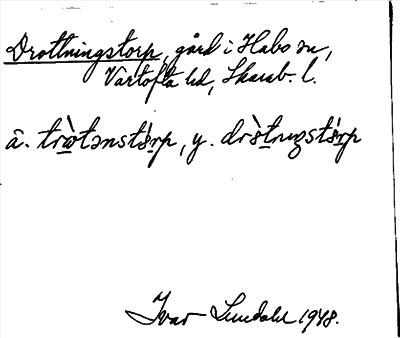 Drottningstorp, gård i Habo sn,
Vartofta hd, Skarab. l.
ä. , y.
Ivar Lundahl 1948.